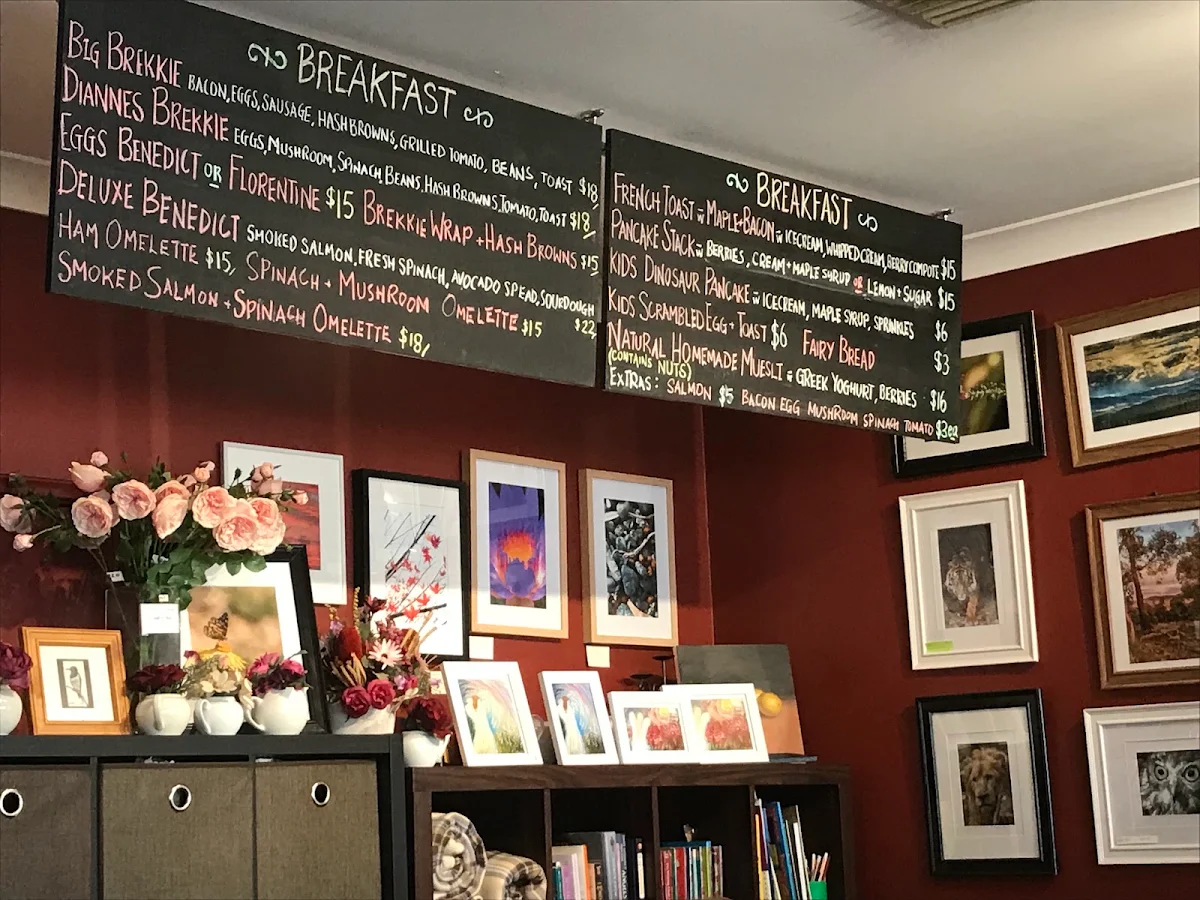 BREAKFAST
BIG BREKKIE BACON, EGGS, SAUSAGE, HASHBROWNS, GRILLED TOMATO, BEANS, TOAST $18/
DIANNES BREKKIE EGGS, MUSHROOM, SPINACH, BEANS, HASH BROWNS, TOMATO, TOAST $18/
EGGS BENEDICT OR FLORENTINE $15 BREKKIE WRAP + HASH BROWNS $15
DELUXE BENEDICT SMOKED SALMON, FRESH SPINACH, AVOCADO SPEAD, SOURDOUGH $22
HAM OMELETTE $15, SPINACH + MUSHROOM OMELETTE $15
SMOKED SALMON + SPINACH OMELETTE $18/
BREAKFAST
FRENCH TOAST w MAPLE + BACON w ICECREAM, WHIPPED CREAM, BERRY COMPOTE $15
PANCAKE STACK w BERRIES, CREAM + MAPLE SYRUP OR LEMON + SUGAR $15
KIDS DINOSAUR PANCAKE w ICECREAM, MAPLE SYRUP, SPRINKLES $6
KIDS SCRAMBLED EGG + TOAST $6 FAIRY BREAD $3
NATURAL HOMEMADE MUESLI w GREEK YOGHURT, BERRIES $16
(CONTAINS NUTS)
EXTRAS: SALMON $5 BACON EGG MUSHROOM SPINACH TOMATO $3ea